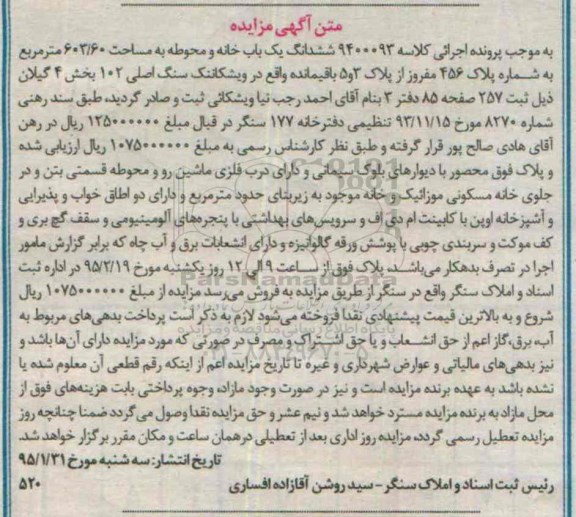 متن آگهی مزایده
به موجب پرونده اجرائی کلاسه ۹۴۰۰۰۹۳ ششدانگ یک باب خانه و محوطه به مساحت ۶۰۳/۶۰ مترمربع
به شماره پلاک ۴۵۶ مفروز از پلاک ۳و۵ باقیمانده واقع در ویشکاننک سنگ اصلی ۱۰۲ بخش ۴ گیلان
ذیل ثبت ۲۵۷ صفحه ۸۵ دفتر ۳ بنام آقای احمد رجب نیا ویشکائی ثبت و صادر گردید، طبق سند رهنی
شماره ۸۲۷۰ مورخ ۹۲/۱۱/۱۵ تنظیمی دفترخانه ۱۷۷ سنگر در قبال مبلغ ۱۲۵۰۰۰۰۰۰ ریال در رهن
آقای هادی صالح پور قرار گرفته و طبق نظر کارشناس رسمی به مبلغ ۱۰۷۵۰۰۰۰۰۰ ریال ارزیابی شده
و پلاک فوق محصور با دیوارهای بلوک سیمانی و دارای درب فلزی ماشین رو و محوطه قسمتی بتن و در
جلوی خانه مسکونی موزائیک و خانه موجود به زیربنای حدود مترمربع و دارای دو اطاق خواب و پذیرایی
و آشپزخانه اوپن با کابینت ام دی اف و سرویس‌های بهداشتی با پنجره‌های آلومینیومی و سقف گچ بری و
کف موکت و سربندی چوبی با پوشش ورقه گالوانیزه و دارای انشعابات برق و آب چاه که برابر گزارش مامور
اجرا در تصرف بدهکار می‌باشد، پلاک فوق از ساعت ۹ الی ۱۲ روز یکشنبه مورخ ۹۵/۲/۱۹ در اداره ثبت
اسناد و املاک سنگر واقع در سنگر از طریق مزایده به فروش می‌رسد مزایده از مبلغ ۱۰۷۵۰۰۰۰۰۰ ریال
شروع و به بالاترین قیمت پیشنهادی نقدا فروخته می‌شود لازم به ذکر است پرداخت بدهی‌های مربوط به
آب، برق، گاز اعم از حق انشعاب و یا حق اشتراک و مصرف در صورتی که مورد مزایده دارای آن‌ها باشد و
نیز بدهی‌های مالیاتی و عوارض شهرداری و غیره تا تاریخ مزایده اعم از اینکه رقم قطعی آن معلوم شده یا
نشده باشد به عهده برنده مزایده است و نیز در صورت وجود مازاد، وجوه پرداختی بابت هزینه‌های فوق از
محل مازاد به برنده مزایده مسترد خواهد شد و نیم عشر و حق مزایده نقدا وصول می‌گردد ضمنا چنانچه روز
مزایده تعطیل رسمی گردد، مزایده روز اداری بعد از تعطیلی درهمان ساعت و مکان مقرر برگزار خواهد شد.
تاریخ انتشار: سه شنبه مورخ ۹۵/۱/۳۱
رئیس ثبت اسناد و املاک سنگر - سید روشن آقازاده افساری ۵۲۰